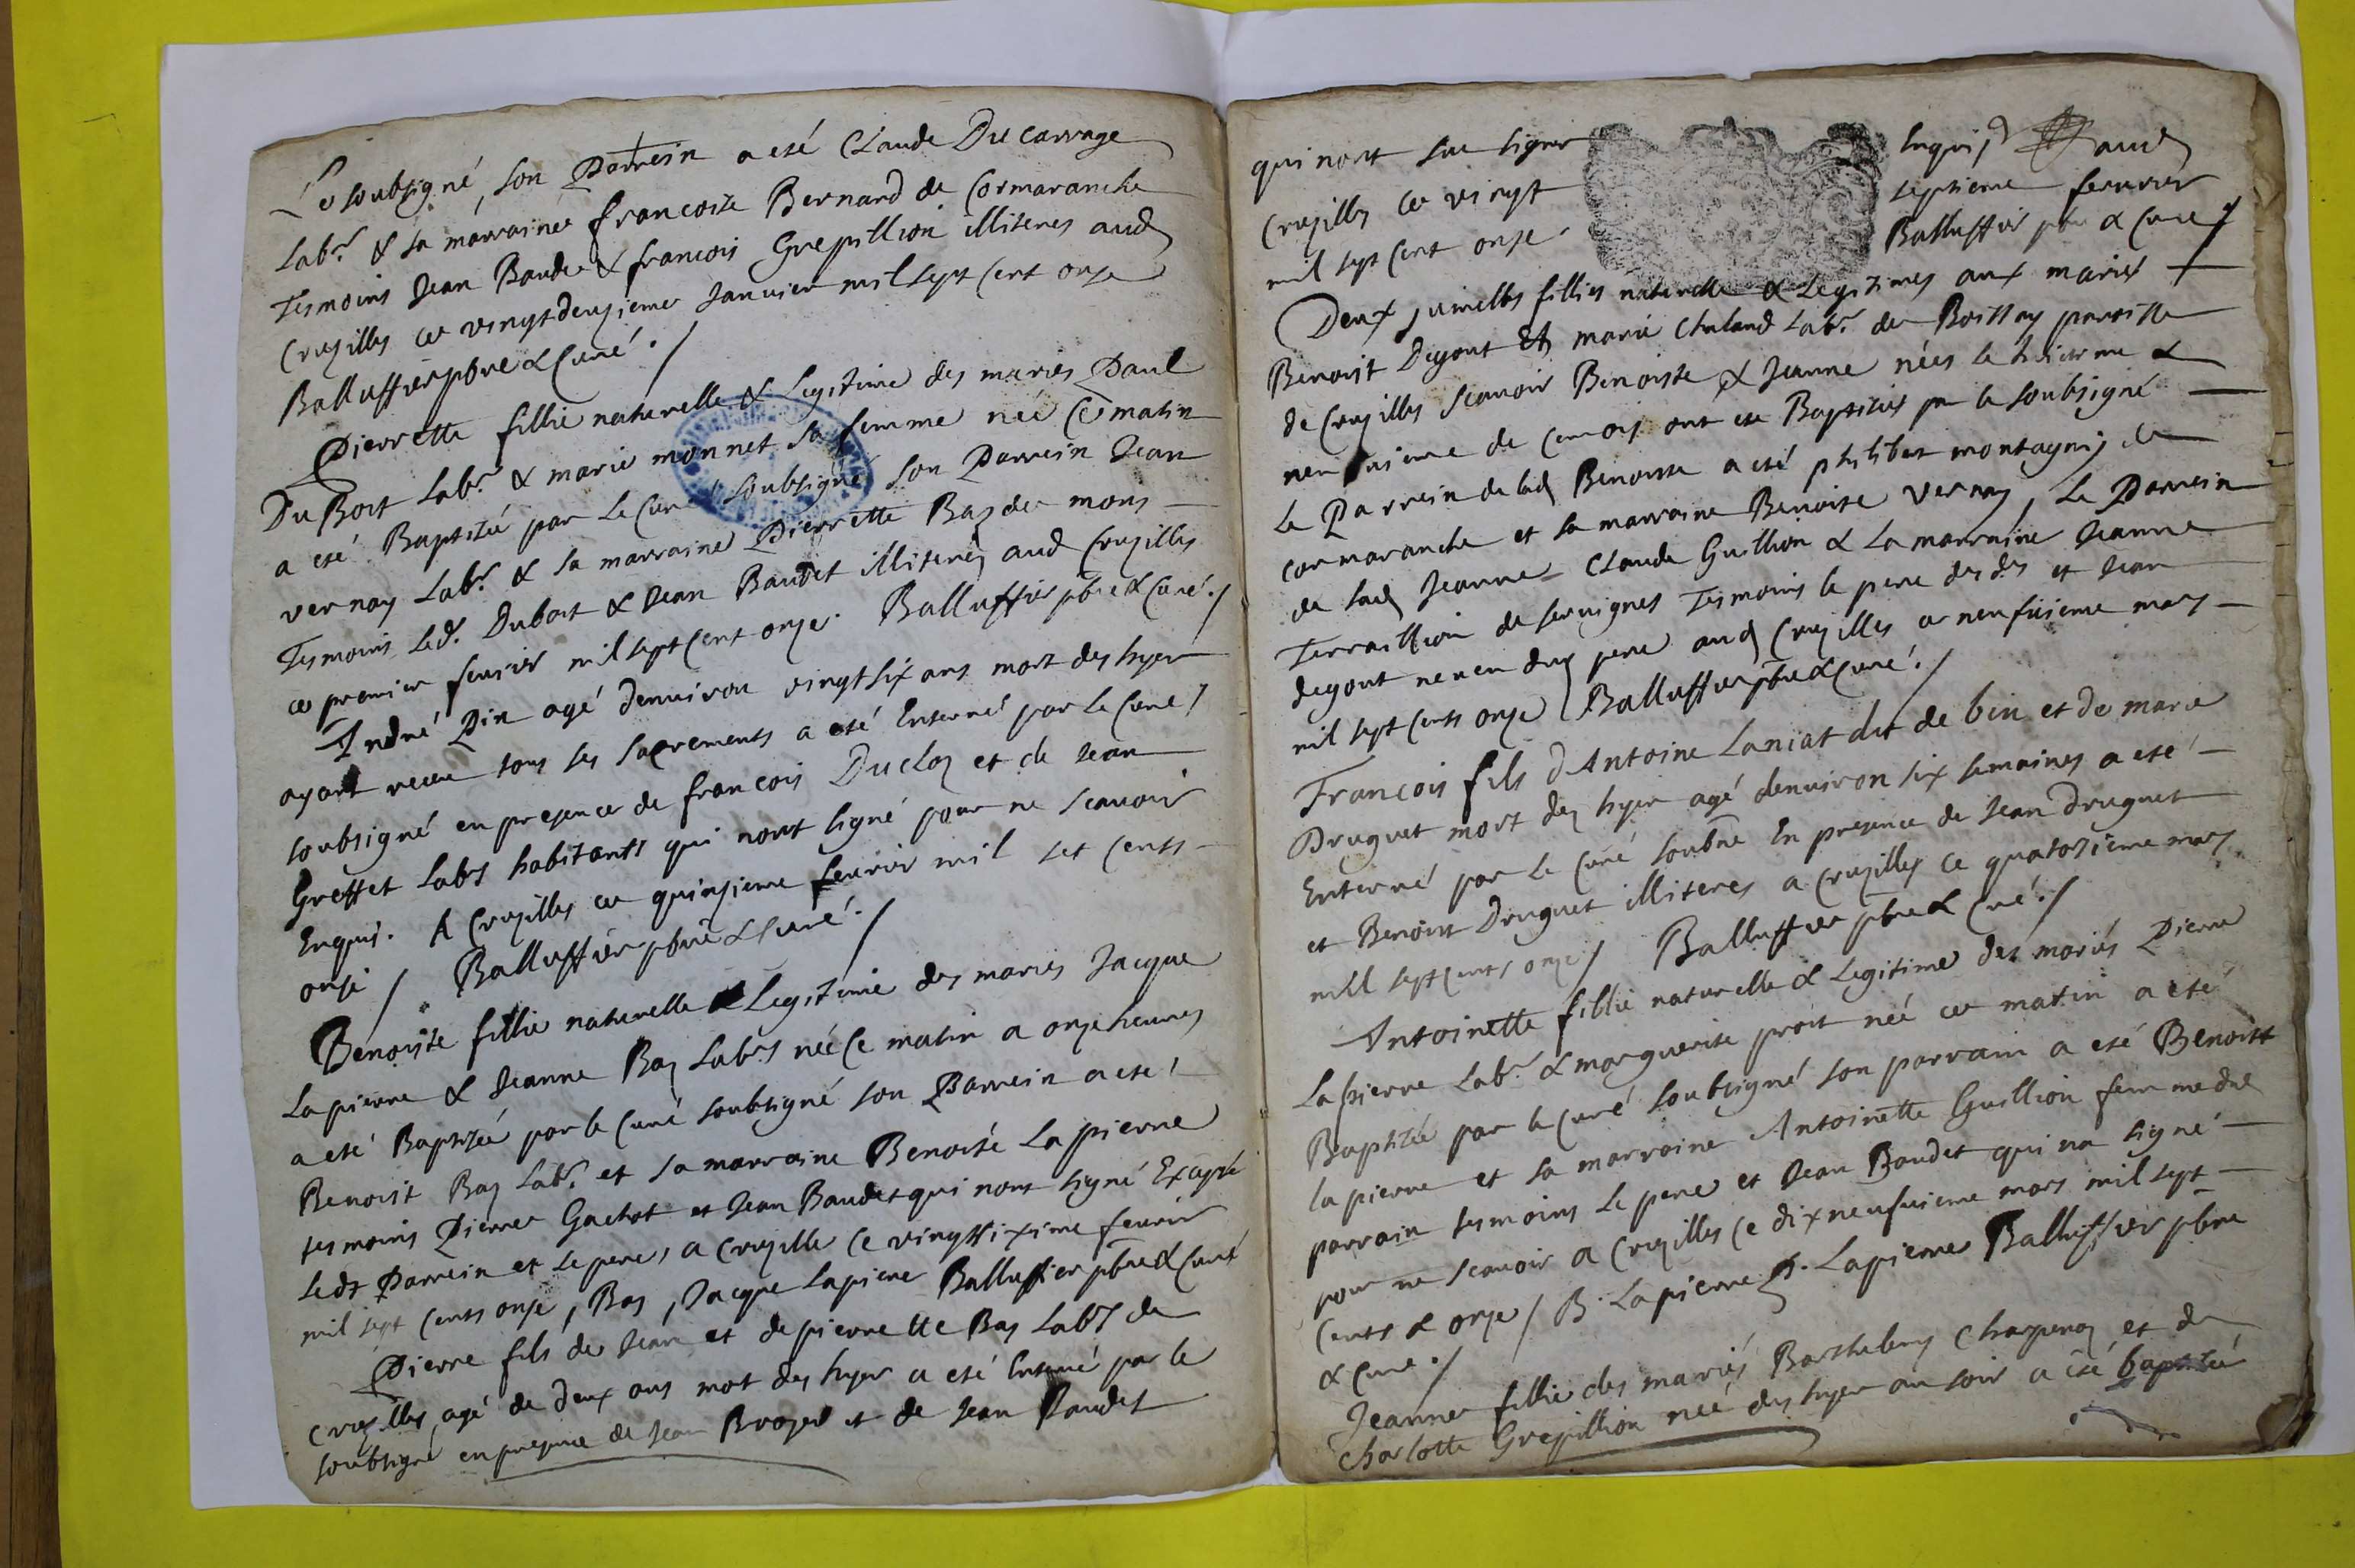 Le soubsigné, son Parrein a esté Claude Du carrage
Labr. & sa marraine francoise Bernard de Cormaranche
Tesmoins Jean Baudet & francois Grepillion illiteres aud
Cruzilles ce vingtdeuzieme Janvier mil sept cent onze
Balluffier pbre & Curé ./
Pierrette fillie naturelle & Legitime des mariés Paul
Du Bost Labr. & marie monnet sa femme née Ce matin
a esté Baptisée par Le Curé soubsigné son Parrein Jean
vernay Labr. & sa marraine Pierrette Bay de mons
Tesmoins Led. Dubost & Jean Baudet illiterés aud Cruzilles
ce premier fevrier mil sept cent onze. Balluffier pbre & Curé ./
André Pin agé denviron vingt six ans mort des hyer
ayant receu tous ses sacrements a esté Enterré par Le Curé
soubsigné en presence de francois Ducloz et de Jean
Greffet Labrs habitants qui nont signé pour ne scavoir
Enquis. A Cruzilles ce quinzieme fevrier mil set cents
onze / Balluffier pbre & Curé ./
Benoiste fillie naturelle & Legitime des mariés Jacque
Lapierre & Jeanne Bay Labrs née Ce matin a onze heures
a esté Baptisée par le Curé soubsigné son Parrein a esté
Benoist Bay Labr. et sa marraine Benoiste La pierre
tesmoins Pierre Gachot et Jean Baudet qui nont signé Excepté
Ledt Parrein et Le pere, a Cruzille Ce vingt sixieme fevrier
mil sept cents onze, Bay, Jacque Lapierre Balluffier pbre & Curé
Pierre fils de Jean et de pierrette Bay Labrs de
cruzilles agé de deux ans mort des hyer a esté Enterré par le
soubsigné en presence de Jean Brozed et de Jean Baudet
qui nont sceu signer Enquis aud
Cruzilles ce vingt septieme fevrier
mil sept cent onze. Balluffier pbre & Curé /
Deux jumelles fillies naturelle & Legitimes aux mariés
Benoist Degout Et marie Chaland Labr. de Boissey paroisse
de Cruzilles scavoir Benoiste & Jeanne nées le huitieme &
neufvieme de Ce mois ont esté Baptisées par le soubsigné
Le Parrein de lad Benoiste a esté philibert montagny de
cormaranche et sa marraine Benoiste Vernay, Le Parrein
de lad Jeanne Claude Guillion & La marraine Jeanne
Terraillion de servignes Tesmoins le pere desdes et Jean
degout neveu dud pere aud Cruzilles ce neufvieme mars
mil sept cents onze / Balluffier pbre & Curé ./
Francois fils dAntoine Laniat dit de bin et de marie
Druguet mort des hyer agé denviron six semaines a esté
Enterré par Le Curé soubné En presence de Jean Druguet
et Benoist Druguet illiteres a Cruzilles Ce quatorzieme mars
mil sept cents onze / Balluffier pbre & Curé ./
Antoinette fillie naturelle & Legitime des mariés Pierre
Lapierre Labr. & marguerite proit née ce matin a esté
Baptisée par le Curé soubsigné son parrain a esté Benoist
lapierre et sa marraine Antoinette Guillion femme dud
parrain tesmoins Le pere et Jean Baudet qui na signé
pour ne scavoir a Cruzilles Ce dixneufvieme mars mil sept
cents & onze / B. Lapierre P. Lapierre Balluffier pbre
& Curé ./
Jeanne fillie des mariés Barthelemy Charpenay et de
charlotte Grepillion née des hyer au soir a esté baptisée